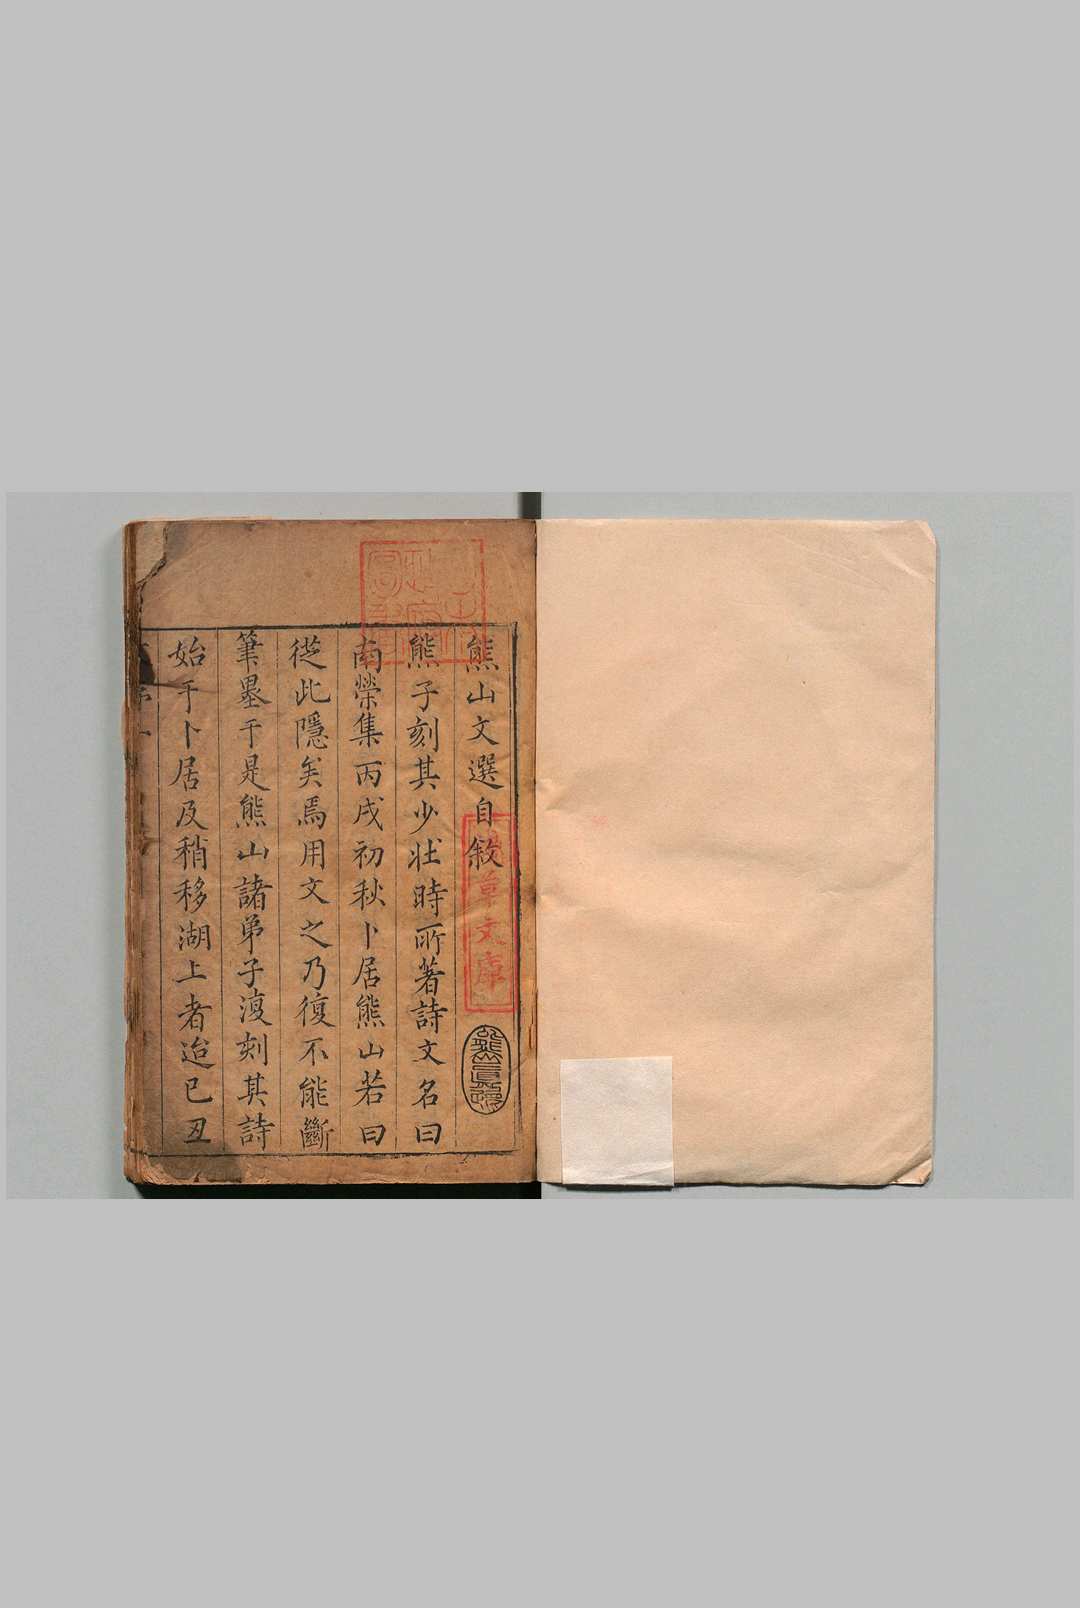 熊山文選自敘
熊子刻其少壯時所著詩文名曰
南榮集丙戌初秋卜居熊山若曰
從此隱矣焉用文之乃復不能斷
筆墨于是熊山諸弟子復刻其詩
始于卜居及稍移湖上者迨已丑
草文庫